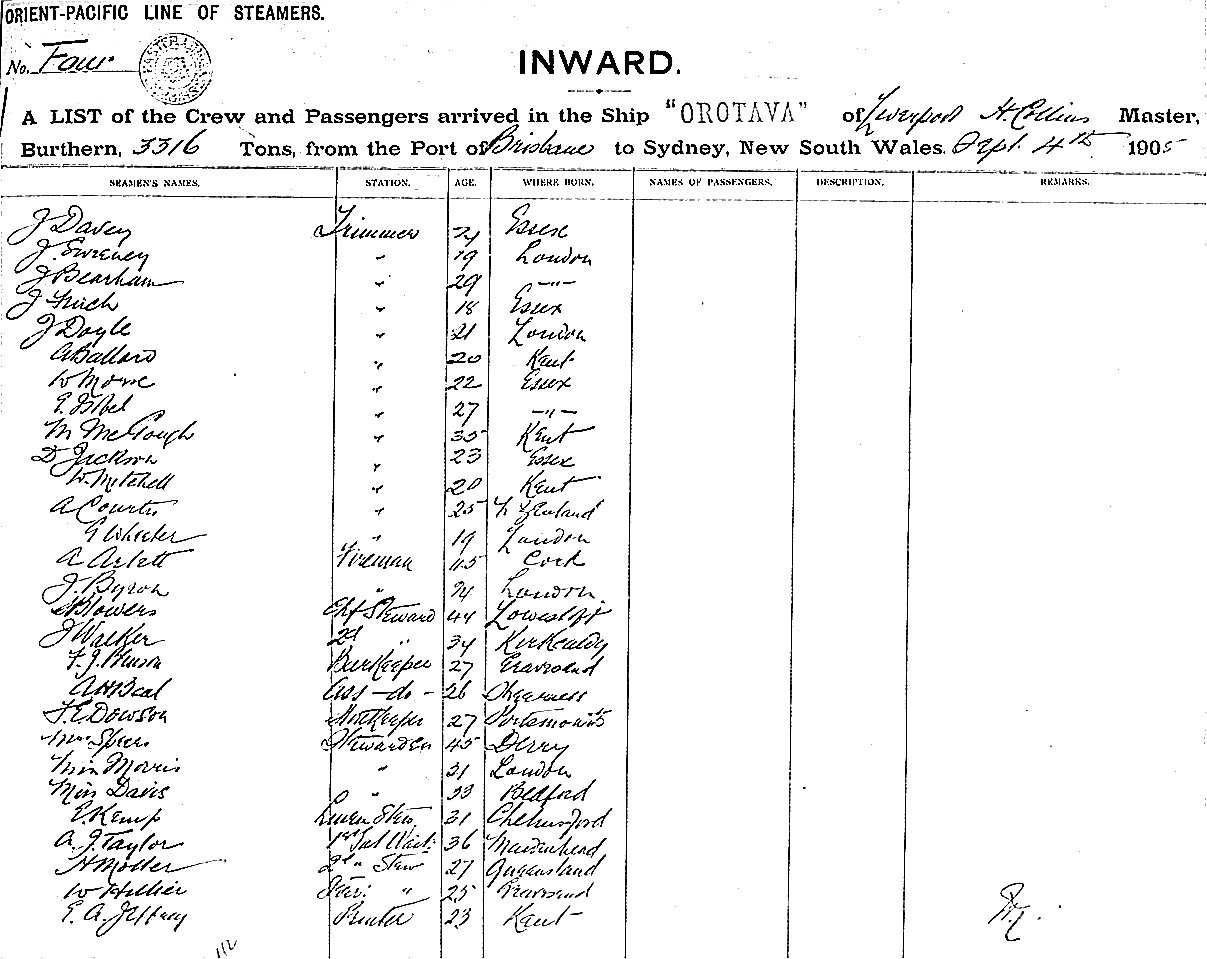 ORIENT-PACIFIC LINE OF STEAMERS.
No. Four
INWARD.
A LIST of the Crew and Passengers arrived in the Ship "OROTAVA" of Liverpool H. Collins Master,
Burthern, 3316 Tons, from the Port of Brisbane to Sydney, New South Wales. Sept. 4th 1905
SEAMEN'S NAMES. STATION. AGE. WHERE BORN. NAMES OF PASSENGERS. DESCRIPTION. REMARKS.
J Davey Trimmer Essex
J. Sweeney " 19 London
J Bearham " 29 —"—
J Finch " 18 Essex
J Doyle " 21 London
A Ballard " 20 Kent
W Morse " 22 Essex
E. " 27 —"—
M McGough " 35 Kent
D Jackson " 23 Essex
W. Mitchell " 20 Kent
A Courtis " 25 N Zealand
G Wheeler " 19 London
A Fireman 45 Cork
J. Byron " London
Blowers Chf Steward 44 Lowestoft
J Walker 2d " 34 Kirkcaldy
F. J. Benson BarKeeper 27 Gravesend
A H Beal Ass —do— 26 Sheerness
F. E Dowson StoreKeeper 27 Portsmouth
Mrs Speers Stewardess 45 Derry
Miss Morris " 31 London
Miss Davis " 33 Bedford
E. Kemp Linen Stew. 31 Chelmsford
A. J. Taylor 1st Sal Wait: 36 Maidenhead
H Moller 2d " Stew 27 Queensland
W Hillier " 25 Gravesend
E. A. Jeffrey Printer 23 Kent
112